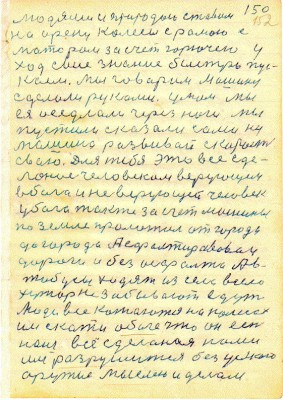 150
152
людями и природою ставим
на арену колеси с рамою с
матором за счет горючего у
ход свие знание быстро пус-
каем. Мы говарим машину
сделали руками. умом мы
ея оседлали через ноги. мы
пустили сказали сами ну
машина развивай скорость
сваю. Для тебя это все сде-
ланое человеком верующим
в бога и не верующий человек
у бага также за счет машины
по земле промотил от города
до города Асфалтировоная
дороги и без асфалта Ав-
тобусы ходят из села в село
хутор не забывают едут
Люди все катаются на колесах
им скати обаче что он ест
нами всё сделаная нами
мы разрушится без умного
оружие мыслею и делам.